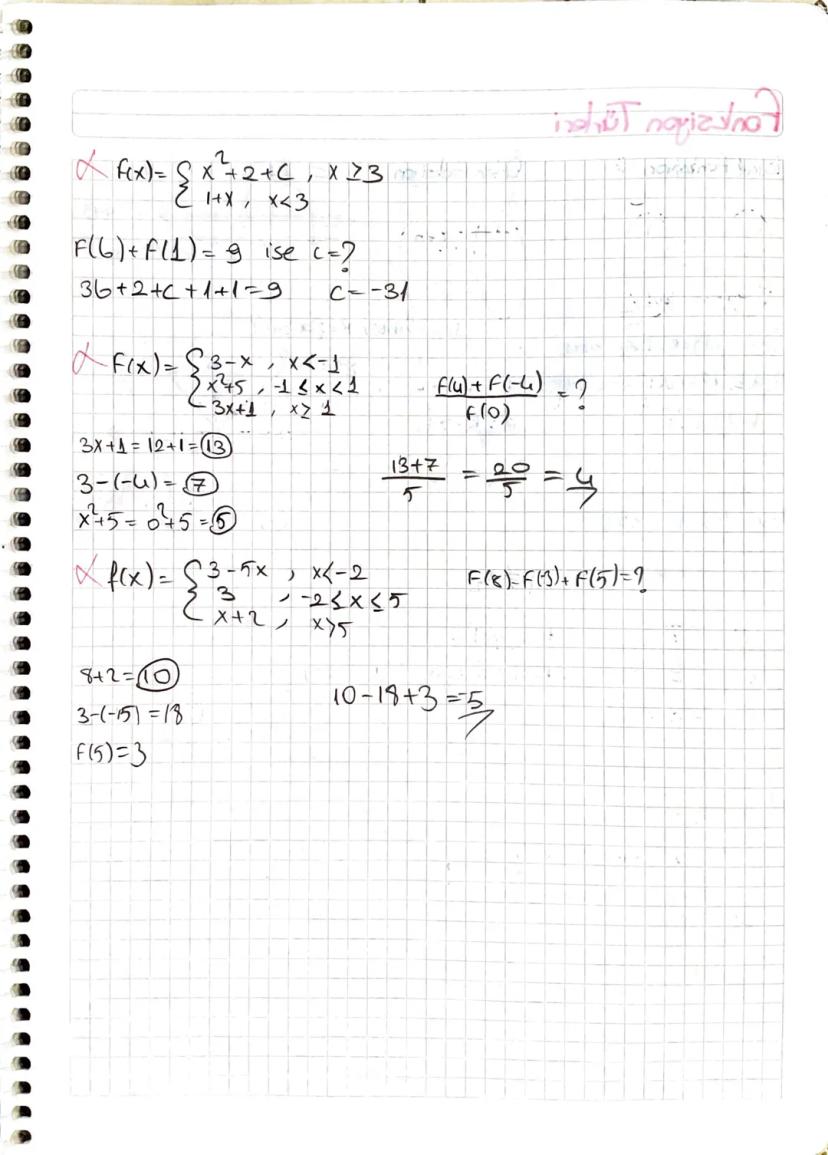 Fonksiyon Türleri
α f(x) = { x²+2+c , x ≥ 3
1+x , x<3
F(6)+f(1)=9 ise c=?
36+2+c+1+1=9 c=-31
α F(x) = { 3-x , x<-1
x²+5 , -1≤x<1
3x+1 , x≥1
f(4)+F(-4) / f(0) = ?
3x+1=12+1=13
3-(-4)=7
x²+5=0²+5=5
13+7 / 5 = 20 / 5 = 4
α f(x) = { 3-5x , x<-2
3 , -2≤x≤5
x+2 , x>5
F(8)-F(-3)+F(5)=?
8+2=10
3-(-15)=18
f(5)=3
10-18+3=-5